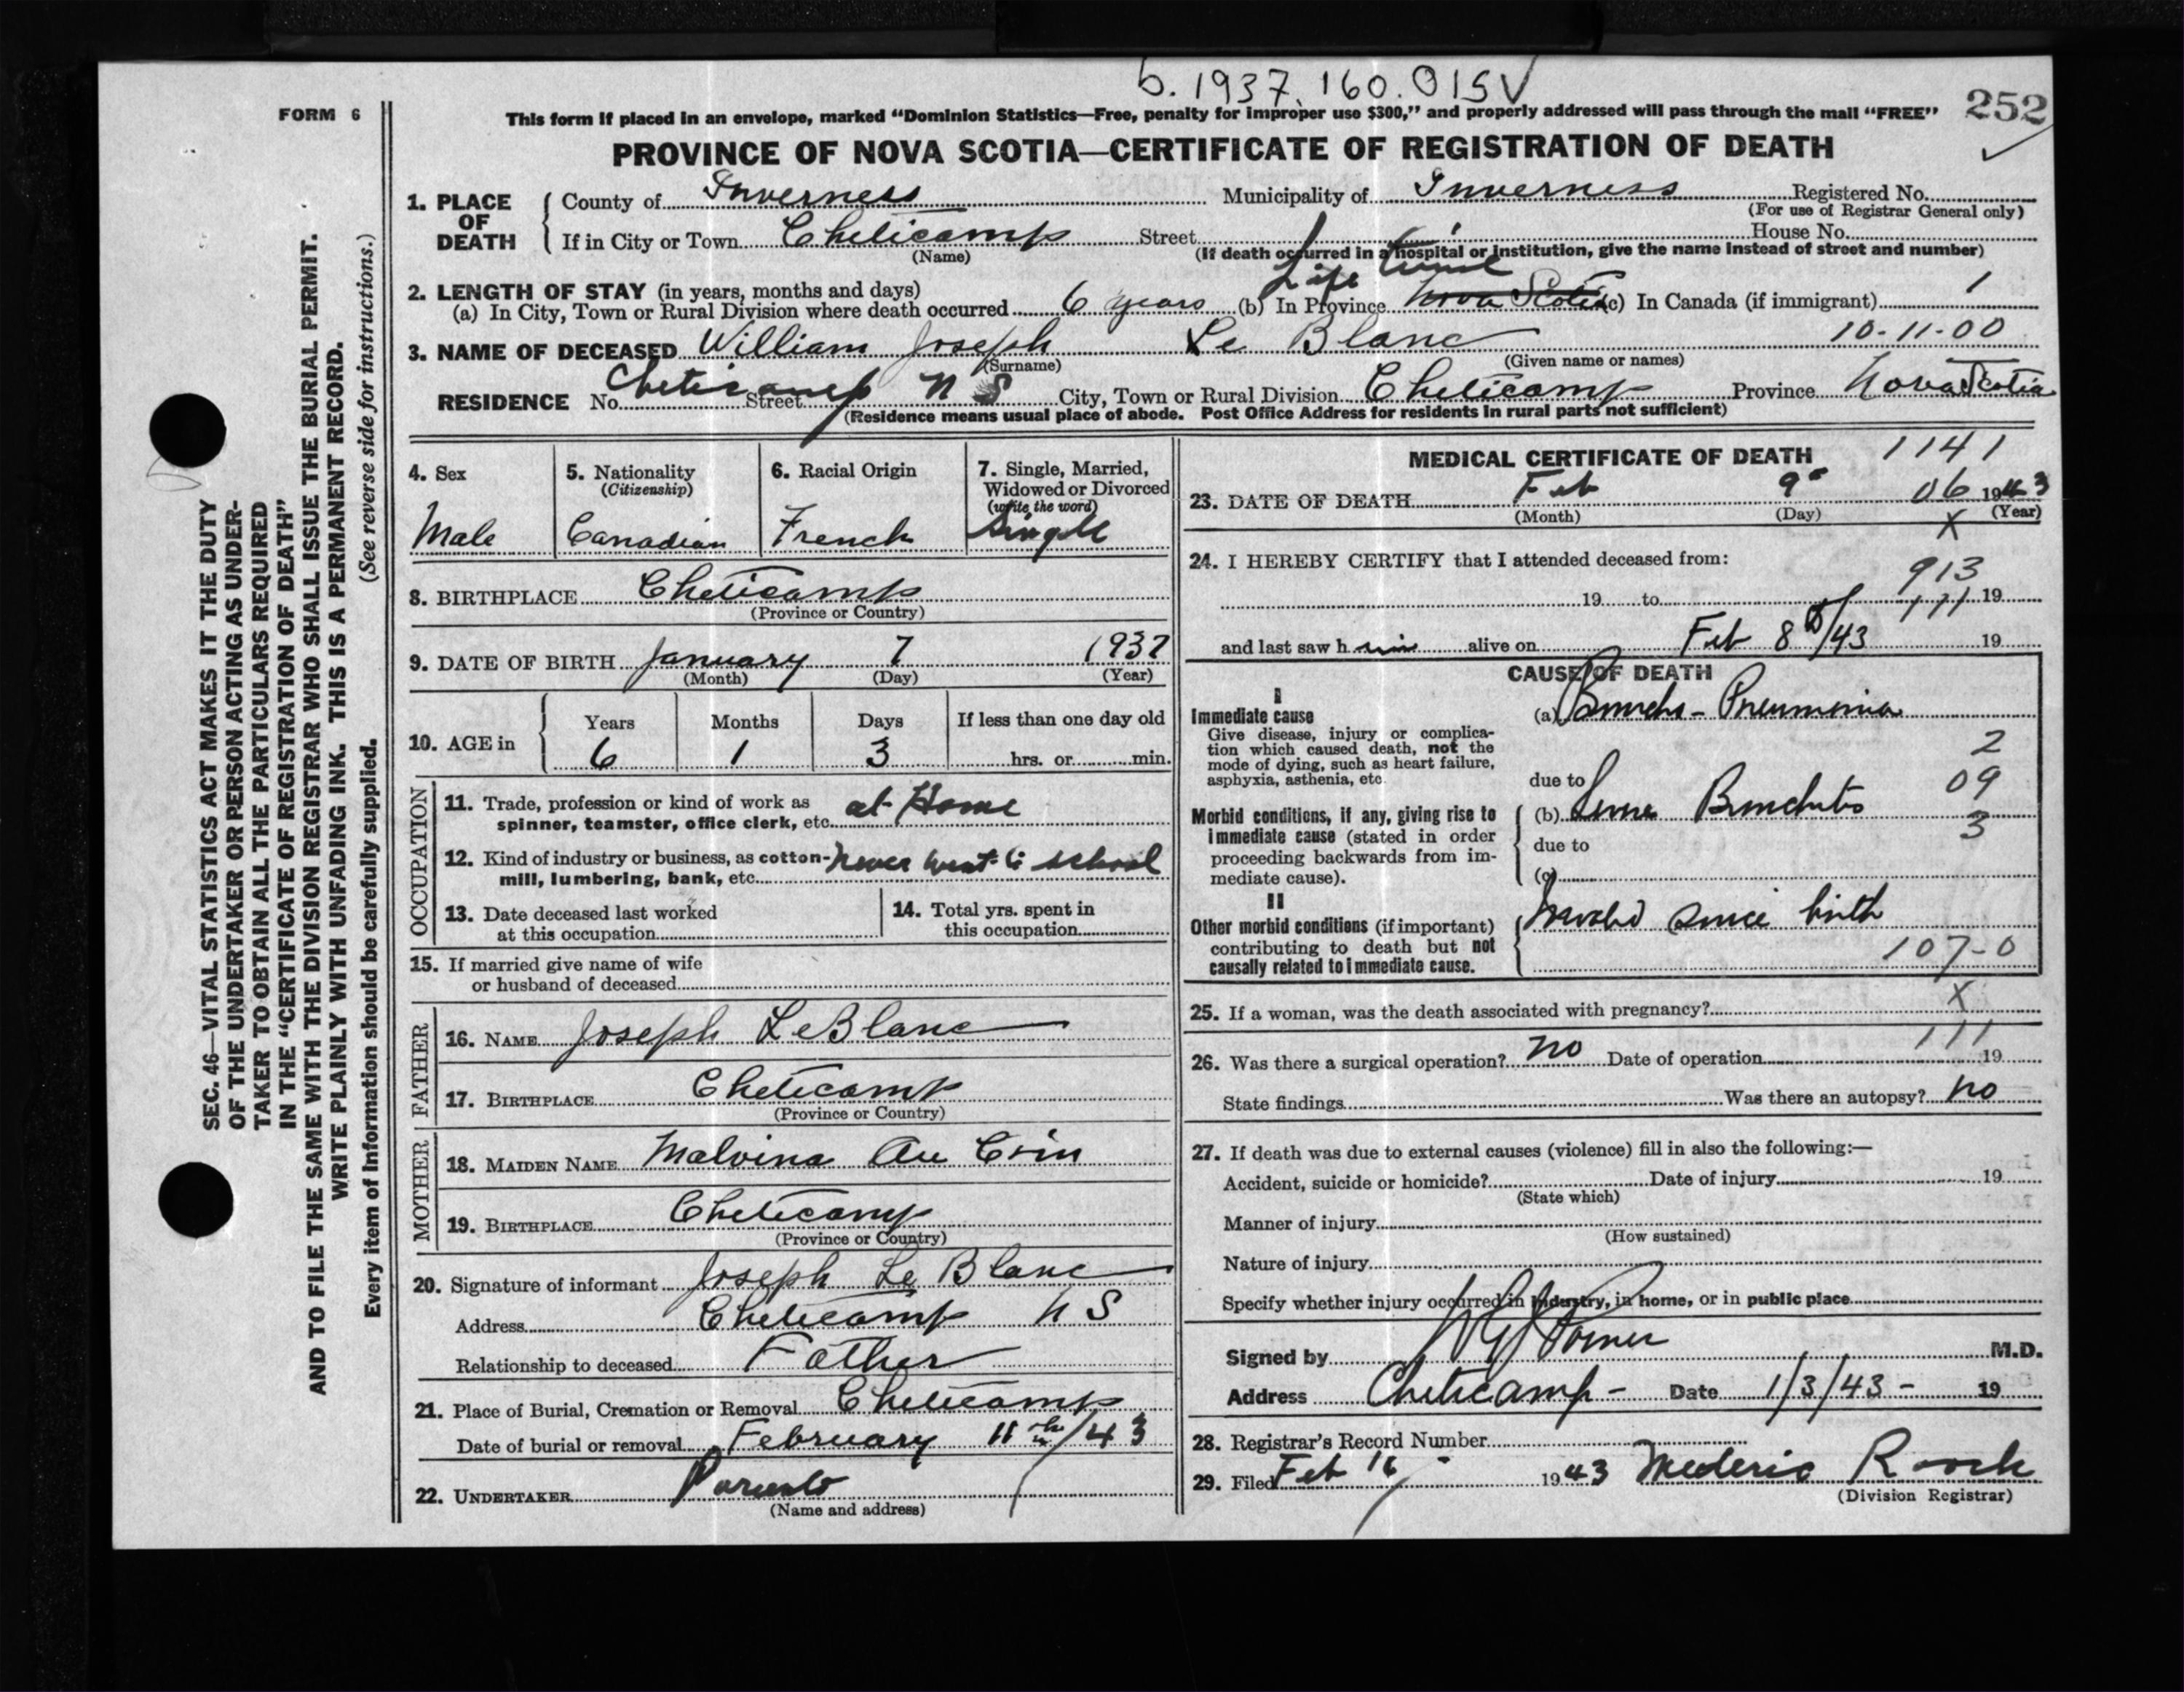 b. 1937. 160. 015V
FORM 6
This form if placed in an envelope, marked “Dominion Statistics—Free, penalty for improper use $300,” and properly addressed will pass through the mail “FREE”
252
PROVINCE OF NOVA SCOTIA—CERTIFICATE OF REGISTRATION OF DEATH
1. PLACE OF DEATH
County of Inverness Municipality of Inverness Registered No.
(For use of Registrar General only)
If in City or Town Cheticamp Street House No.
(Name) (If death occurred in a hospital or institution, give the name instead of street and number)
Life time
2. LENGTH OF STAY (in years, months and days)
(a) In City, Town or Rural Division where death occurred 6 years (b) In Province Nova Scotia (c) In Canada (if immigrant)
10-11-00
3. NAME OF DECEASED William Joseph Le Blanc
(Surname) (Given name or names)
RESIDENCE No. Cheticamp Street N S City, Town or Rural Division Cheticamp Province Nova Scotia
(Residence means usual place of abode. Post Office Address for residents in rural parts not sufficient)
4. Sex
Male
5. Nationality
(Citizenship)
Canadian
6. Racial Origin
French
7. Single, Married,
Widowed or Divorced
(write the word)
Single
8. BIRTHPLACE Cheticamp
(Province or Country)
9. DATE OF BIRTH January 7 1937
(Month) (Day) (Year)
10. AGE in
Years Months Days If less than one day old
6 1 3 hrs. or min.
OCCUPATION
11. Trade, profession or kind of work as at Home
spinner, teamster, office clerk, etc.
12. Kind of industry or business, as cotton- never went to school
mill, lumbering, bank, etc.
13. Date deceased last worked
at this occupation
14. Total yrs. spent in
this occupation
15. If married give name of wife
or husband of deceased
FATHER
16. NAME Joseph LeBlanc
17. BIRTHPLACE Cheticamp
(Province or Country)
MOTHER
18. MAIDEN NAME Malvina Au Coin
19. BIRTHPLACE Cheticamp
(Province or Country)
20. Signature of informant Joseph Le Blanc
Address Cheticamp N S
Relationship to deceased Father
21. Place of Burial, Cremation or Removal Cheticamp
Date of burial or removal February 11th/43
22. UNDERTAKER
(Name and address)
MEDICAL CERTIFICATE OF DEATH
1141
23. DATE OF DEATH Feb 9 06 1943
(Month) (Day) (Year)
X
24. I HEREBY CERTIFY that I attended deceased from:
913
19 to 111 19
and last saw h im alive on Feb 8/43 19
CAUSE OF DEATH
I
Immediate cause
Give disease, injury or complica-
tion which caused death, not the
mode of dying, such as heart failure,
asphyxia, asthenia, etc.
(a) Broncho-Pneumonia
2
due to
09
Morbid conditions, if any, giving rise to
immediate cause (stated in order
proceeding backwards from im-
mediate cause).
(b) Bronchitis
3
due to
(c)
II
Other morbid conditions (if important)
contributing to death but not
causally related to immediate cause.
Invalid since birth
107-0
25. If a woman, was the death associated with pregnancy? X
26. Was there a surgical operation? no Date of operation 111 19
State findings Was there an autopsy? no
27. If death was due to external causes (violence) fill in also the following:—
Accident, suicide or homicide? Date of injury 19
(State which)
Manner of injury
(How sustained)
Nature of injury
Specify whether injury occurred in industry, in home, or in public place
Signed by M.D.
Address Cheticamp - Date 1/3/43 - 19
28. Registrar’s Record Number
29. Filed Feb 16 1943 Mederic Roach
(Division Registrar)
SEC. 46—VITAL STATISTICS ACT MAKES IT THE DUTY
OF THE UNDERTAKER OR PERSON ACTING AS UNDER-
TAKER TO OBTAIN ALL THE PARTICULARS REQUIRED
IN THE “CERTIFICATE OF REGISTRATION OF DEATH”
AND TO FILE THE SAME WITH THE DIVISION REGISTRAR WHO SHALL ISSUE THE BURIAL PERMIT.
WRITE PLAINLY WITH UNFADING INK. THIS IS A PERMANENT RECORD.
(See reverse side for instructions.)
Every item of Information should be carefully supplied.